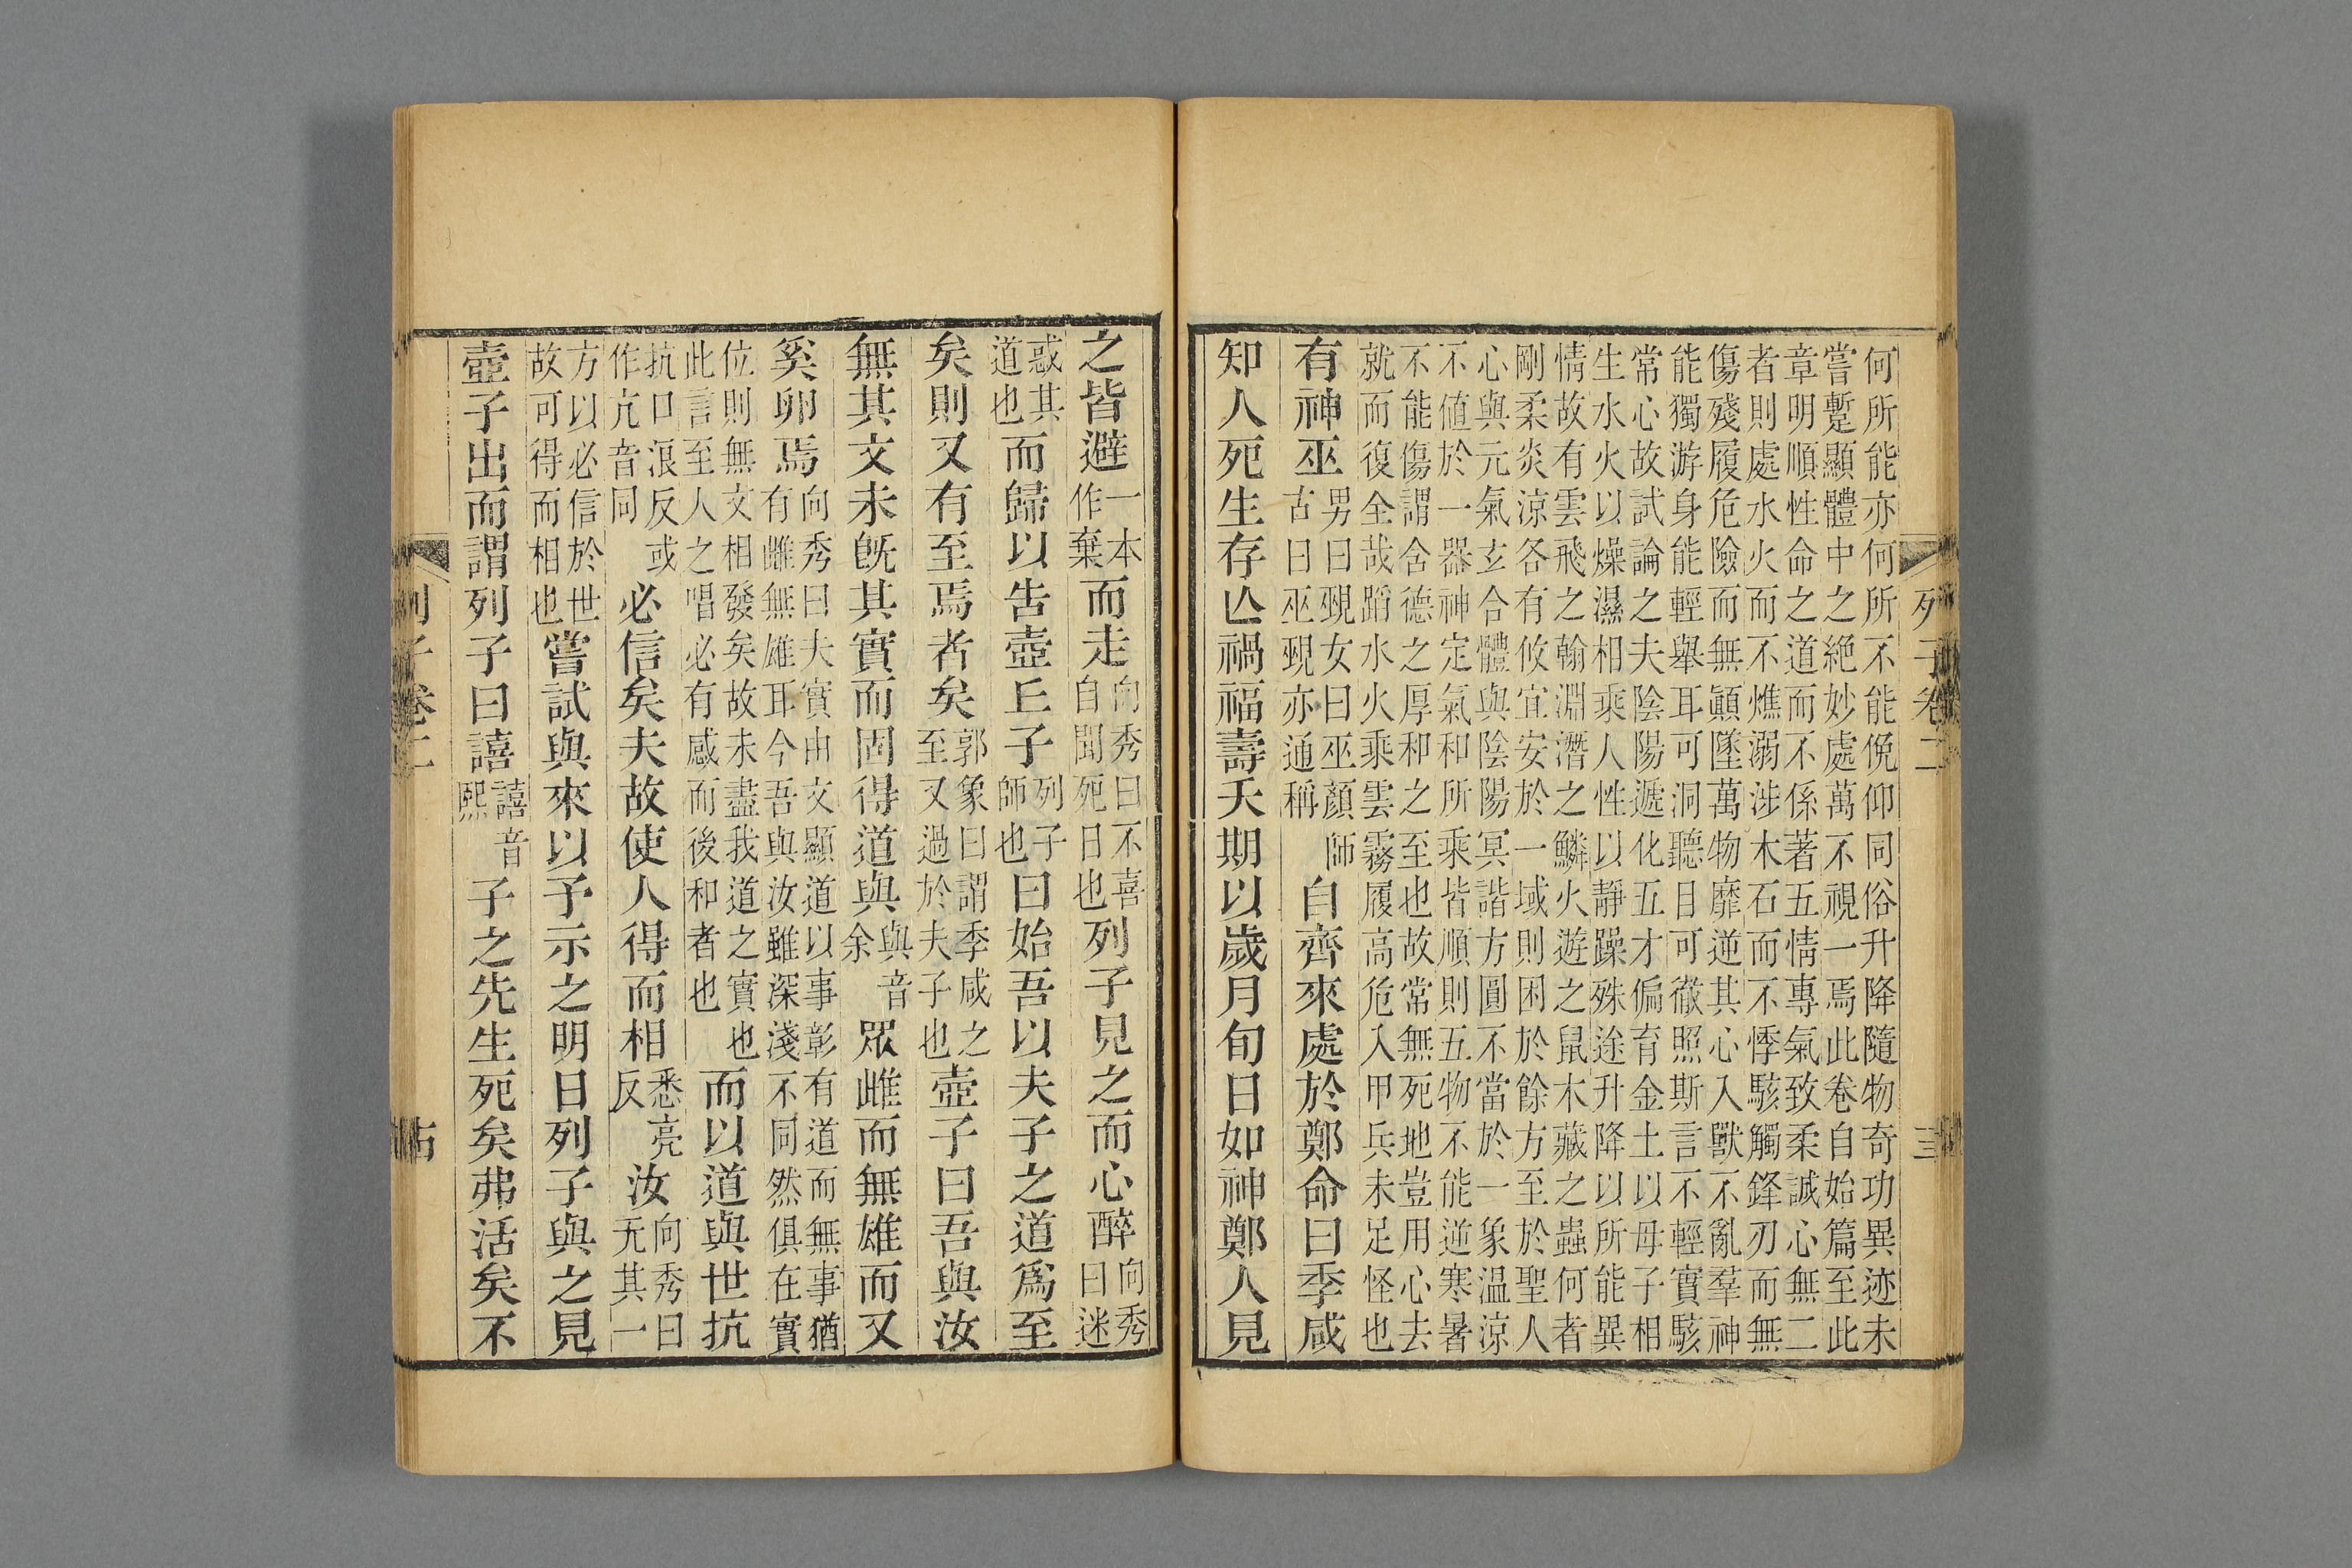 何所能亦何所不能俛仰同俗升降隨物奇功異迹未
嘗蹔顯體中之絕妙處萬不視一焉此卷自始篇至此
章明順性命之道而不係著五情專氣致柔誠心無二
者則處水火而不燋溺涉木石而不悸駭觸鋒刃而無
傷殘履危險而無顚墜萬物靡逆其心入獸不亂羣神
能獨游身能輕舉耳可洞聽目可徹照斯言不輕實駭
常心故試論之夫陰陽遞化五才偏育金土以母子相
生水火以燥濕相乘人性以靜躁殊途升降以所能異
情故有雲飛之翰淵潛之鱗火遊之鼠木藏之蟲何者
剛柔炎涼各有攸宜安於一域則困於餘方至於聖人
心與元氣玄合體與陰陽冥諧方圓不當於一象温涼
不値於一器神定氣和所乘皆順則五物不能逆寒暑
不能傷謂舍德之厚和之至也故常無死地豈用心去
就而復全哉蹈水火乘雲霧履高危入甲兵未足怪也
有神巫
男曰覡女曰巫顏師
古曰巫覡亦通稱
自齊來處於鄭命曰季咸
知人死生存亾禍福壽夭期以歲月旬日如神鄭人見
列子卷二
之皆避
一本
作棄
而走
向秀曰不喜
自聞死日也
列子見之而心醉
向秀
曰迷
惑其
道也
而歸以告壺丘子
列子
師也
曰始吾以夫子之道爲至
矣則又有至焉者矣
郭象曰謂季咸之
至又過於夫子也
壺子曰吾與汝
無其文未旣其實而固得道與
與音
余
眾雌而無雄而又
奚卵焉
向秀曰夫實由文顯道以事彰有道而無事猶
有雌無雄耳今吾與汝雖深淺不同然俱在實
位則無文相發矣故未盡我道之實也
此言至人之唱必有感而後和者也
而以道與世抗
抗口浪反或
作亢音同
必信矣夫故使人得而相
悉亮
反
汝
向秀曰
无其一
方以必信於世
故可得而相也
嘗試與來以予示之明日列子與之見
壺子出而謂列子曰譆
譆音
熙
子之先生死矣弗活矣不
列子卷二